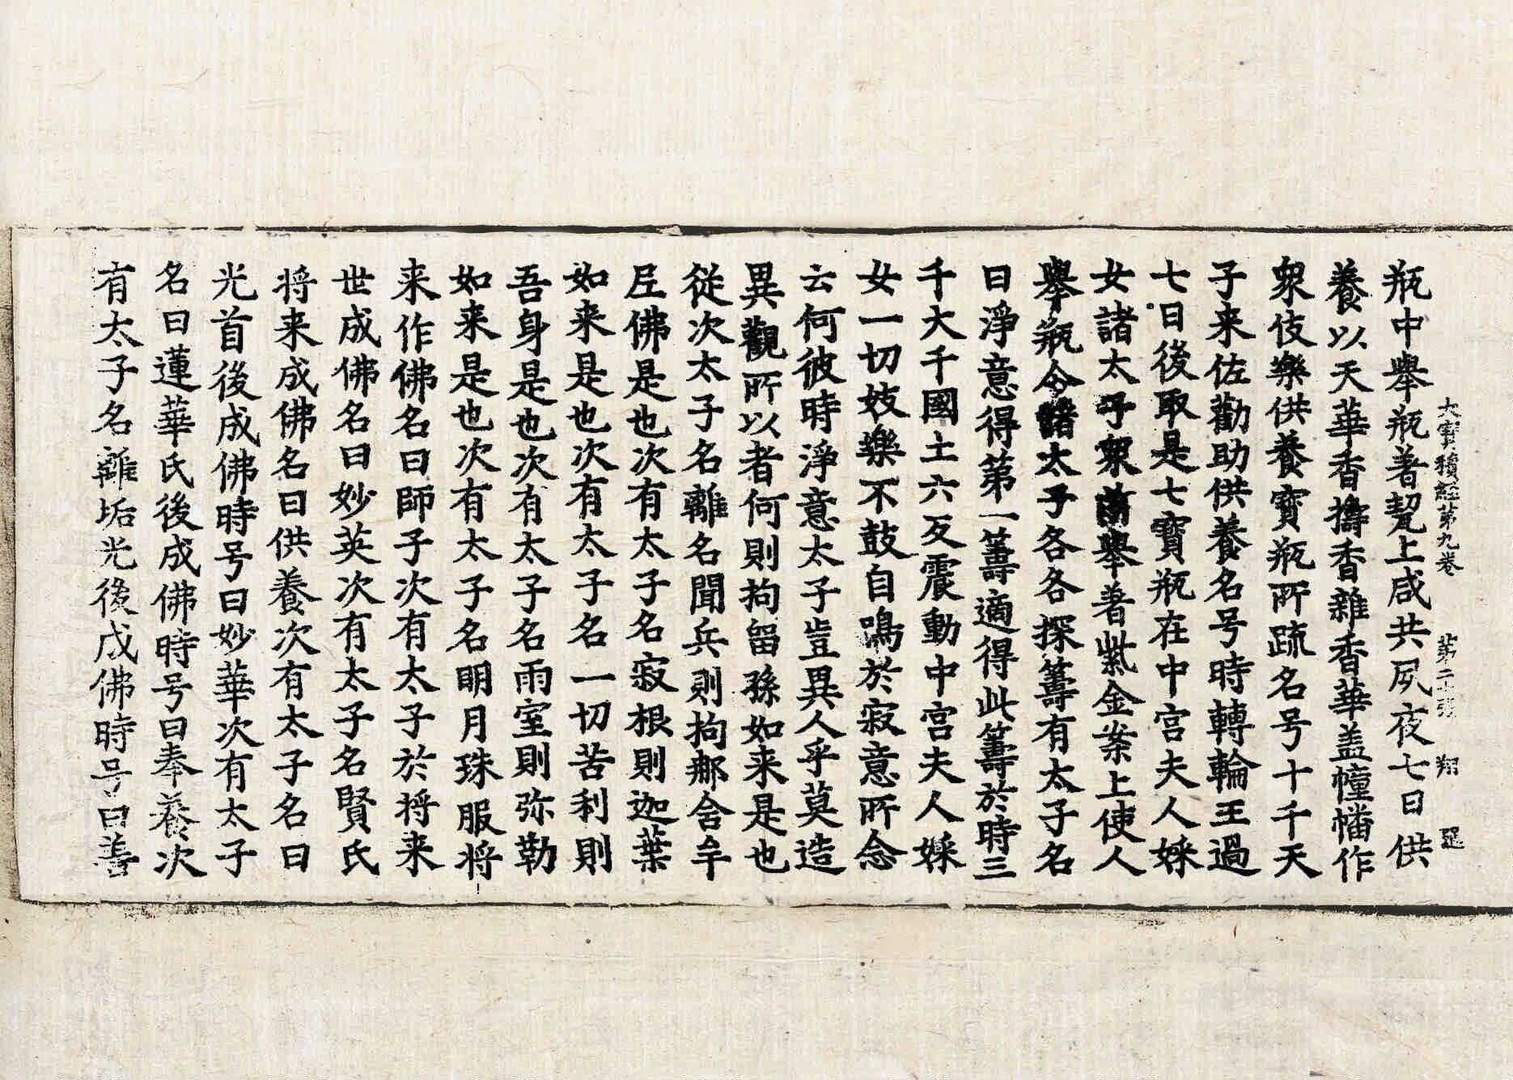 大寶積經第九卷　第二十張　翔
瓶中舉瓶著㲉上咸共夙夜七日供
養以天華香擣香雜香華盖幢幡作
衆伎樂供養寶瓶所疏名号十千天
子来佐勸助供養名号時轉輪王過
七日後取是七寶瓶在中宮夫人婇
女諸太子衆前舉著紫金案上使人
舉瓶令諸太子各各探籌有太子名
曰淨意得第一籌適得此籌於時三
千大千國土六反震動中宮夫人婇
女一切妓樂不鼓自鳴於寂意所念
云何彼時淨意太子豈異人乎莫造
異觀所以者何則拘留孫如来是也
從次太子名離名聞兵則拘那舍牟
尼佛是也次有太子名寂根則迦葉
如来是也次有太子名一切苦利則
吾身是也次有太子名雨室則弥勒
如来是也次有太子名明月珠服將
来作佛名曰師子次有太子於将来
世成佛名曰妙英次有太子名賢氏
将来成佛名曰供養次有太子名曰
光首後成佛時号曰妙華次有太子
名曰蓮華氏後成佛時号曰奉養次
有太子名離垢光後成佛時号曰善